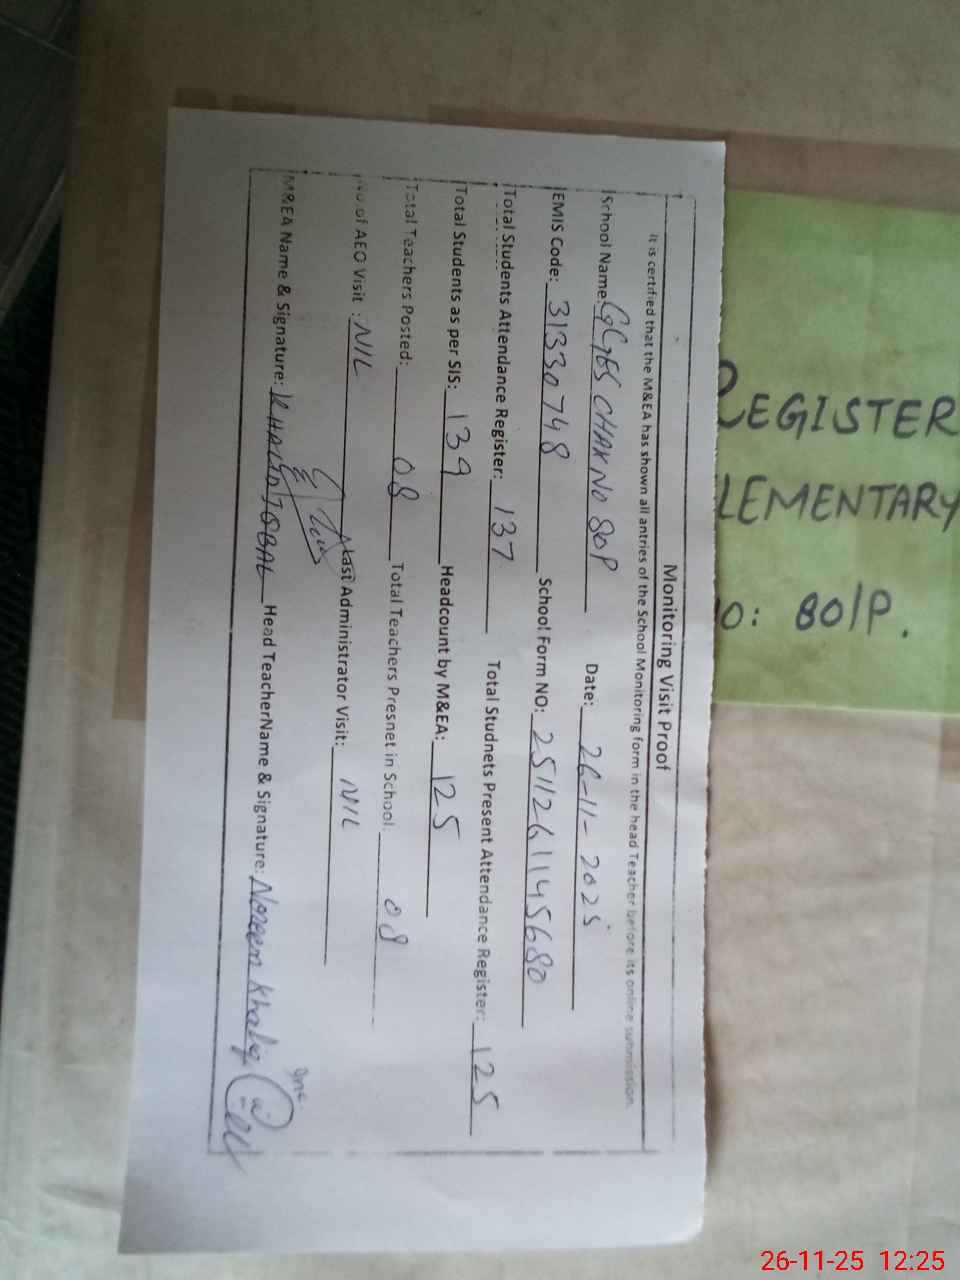 Monitoring Visit Proof
It is certified that the M&EA has shown all antries of the School Monitoring form in the head Teacher before its online submission.
School Name: GGES CHAK NO 80P Date: 26-11-2025
EMIS Code: 31330748 School Form NO: 2511261145680
Total Students Attendance Register: 137 Total Studnets Present Attendance Register: 125
Total Students as per SIS: 139 Headcount by M&EA: 125
Total Teachers Posted: 08 Total Teachers Presnet in School: 08
No.of AEO Visit : NIL Last Administrator Visit: NIL
M&EA Name & Signature: KHALID IQBAL Head TeacherName & Signature: Noreen Khaliq
Inc.
REGISTER
LEMENTARY
O: 80/P.
26-11-25 12:25